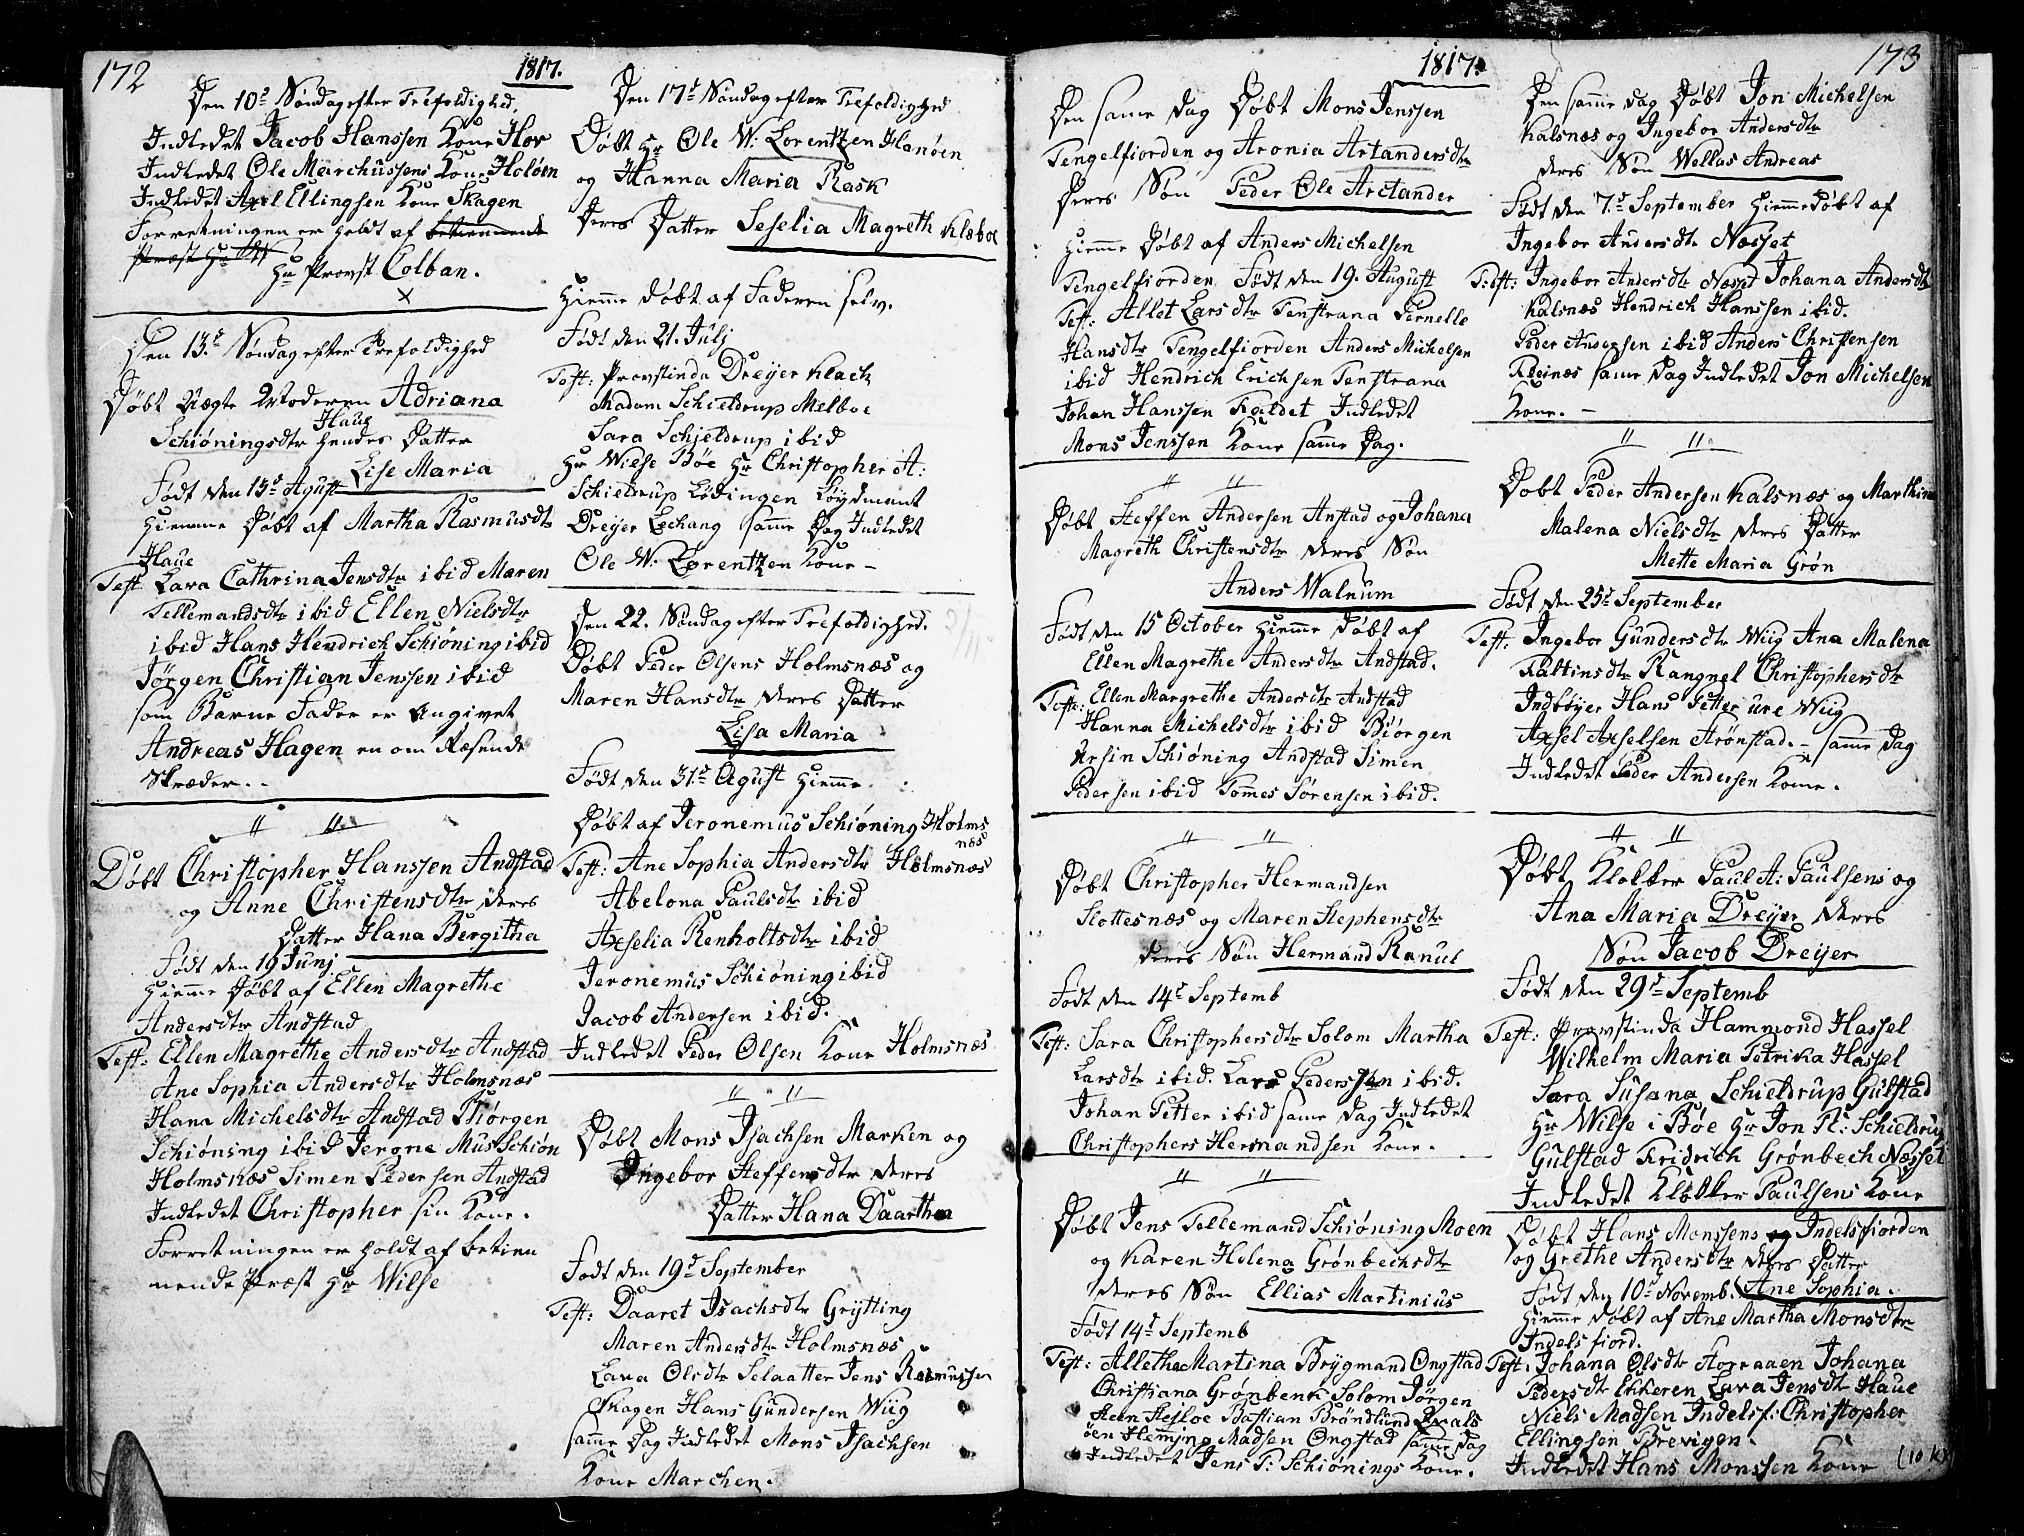 172
1817.
Den 10de Søndag efter Trefoldighed.
Indledet Jacob Hanssen Kone Hov
Indledet Ole Marchussens Kone Holøen
Indledet Axel Ellingsen Kone Skagen
Forretningen er holdt af betienende
Præst Hr
Hr Provst Colban.
Den 13de Søndag efter Trefoldighed
Døbt Uægte Moderen Adriana
Haug
Schiøningsdtr hendes Datter
Lise Maria
Født den 13de Agust
hiemme Døbt af Martha Rasmusdtr
Haue
Test Lara Cathrina Jensdtr ibid Maren
Tellemandsdtr ibid Ellen Nielsdtr
ibid Hans Hendrich Schiøning ibid
Jørgen Christian Jenssen ibid
som Barne Fader er Angivet
Andreas Hagen en om Ræsende
Skræder.
" "
Døbt Christopher Hanssen Andstad
og Anne Christensdtr deres
Datter Hana Bergitha
Født den 19 Junj
hiemme Døbt af Ellen Magrethe
Andersdtr Andstad
Test: Ellen Magrethe Andersdtr Andstad
Ane Sophia Andersdtr Holmsnæs
Hana Michelsdtr Andstad Biørgen
Schiøning ibid Jerone Mus Schiøn
Holmsnæs Simen Pedersen Andstad
Indledet Christopher sin Kone.
Forretningen er holdt af betien
nende Præst Hr Wilse
Den 17de Søndag efter Trefoldighed
Døbt Hr Ole W. Lorentzen Hanøen
og Hanna Maria Rask
Deres Datter Seselia Magreth Klæboe
hiemme døbt af Faderen selv.
Født den 21. Julj
Test: Provstinda Dreyer Klack
Madam Schieldrup Melboe
Sara Schjeldrup ibid
Hr Wilse Bøe Hr Christopher A:
Schieldrup Lødingen Løydmant
Dreyer Lechang samme Dag Indledet
Ole W. Lorentzen Kone
Den 22. Søndag efter Trefoldighed.
Døbt Peder Olsens Holmsnæs og
Maren Hansdtr deres Datter
Lisa Maria
Født den 31te Agust hiemme
Døbt af Jeronemus Schiøning Holms
næs
Test: Ane Sophia Andersdtr Holmsnæs
Abelona Paulsdtr ibid
Axselia Renholtsdtr ibid
Jeronemus Schiøning ibid
Jacob Andersen ibid.
Indledet Peder Olsen Kone Holmsnæs
" "
Døbt Mons Isachsen Marken og
Ingebor Steffensdtr deres
Datter Hana Daarthea
Født den 19de September
Test: Daaret Isachsdtr Grytting
Maren Andersdtr Holmsnæs
Lava Olsdtr Selaatter Jens Rasmussen
Skagen Hans Gundersen Wiig
samme Dag Indledet Mons Isachsen
Kone Marchen.
1817.
173
Den samme Dag Døbt Mons Jenssen
Tengelfiorden og Aronia Artandersdtr
Deres Søn Peder Ole Arctander
hiemme Døbt af Anders Michelsen
Tengelfiorden Født den 19. August
Test: Allet Larsdtr Tenstrana Pernelle
Hansdtr Tengelfiorden Anders Michelsen
ibid Hendrich Erichsen Tenstrana
Johan Hanssen Indledet
Mons Jenssen Kone samme Dag.
" "
Døbt Steffen Andersen Anstad og Johana
Magreth Christensdtr deres Søn
Anders Walnum
Født den 15 October hiemme Døbt af
Ellen Magrethe Andersdtr Andstad.
Test: Ellen Margrethe Andersdtr Andstad
Hanna Michelsdtr ibid Biørgen
Schiøning Andstad Simen
Pedersen ibid Tommes Sørensen ibid.
" "
Døbt Christopher Hermandsen
Slottesnæs og Maren Stephensdtr
deres Søn Hermand Ranus
Født den 14de Septemb
Test: Sara Christophersdtr Solom Martha
Larsdtr ibid. Lars Pederssen ibid.
Johan Petter ibid samme Dag Indledet
Christophers Hermandsen Kone.
" "
Døbt Jens Tellemand Schiøning Moen
og Karen Helena Grønbechsdtr
deres Søn Ellias Martinius
Født 14de Septemb
Test: Allethe Martina Brygmand Ongstad
Christiana Grønbenk Solom Jørgen
Steen Steiloe Bastian Brøndlund Hvals
øen Hemming Madsen Ongstad samme Dag
Indledet Jens T: Schiønings Kone.
Den samme Dag Døbt Jon Michelsen
Kalsnæs og Ingebor Andersdtr
deres Søn Wellas Andreas
Født den 7de September hiemme Døbt af
Ingebor Andersdtr Næsset
Test: Ingebor Andersdtr Næset Johana Andersdtr
Kalsnæs Hendrich Hanssen ibid.
Peder Andersen ibid Anders Christensen
samme Dag Indledet Jon Michelsen
Kone.
" "
Døbt Peder Andersen Kalsnæs og Marthina
Malena Nielsdtr deres Datter
Mette Maria Grøn
Født den 25de September
Test: Ingebor Gundersdtr Wiig Ana Malena
Rangnel Christophersdtr
Indbøyer Hans Petter ure Wiig
Axsel Axselsen Arønstad. samme Dag
Indledet Peder Andersen Kone.
" "
Døbt Klokker Paul A: Paulsens og
Ana Maria Dreyer deres
Søn Jacob Dreyer
Født den 29de Septemb
Test: Provstinda Hammond Hassel
Wilhelm Maria Petrika Hassel
Sara Susana Schieldrup Gulstad
Hr Wilse i Bøe Hr Jon Pl: Schieldrup
Gulstad Fridrich Grønbech Næsset
Indledet Klokker Paulsens Kone
Døbt Hans Monssens og Indelsfiorden
og Grethe Andersdtr deres Datter
Født den 10de Novemb. Ane Sophia.
hiemme døbt af Ane Martha Monsdtr
Indelsfiord.
Test: Johana Olsdtr Horraaen Johana
Pedersdtr Ekkeren Lava Jensdtr Haue
Niels Madsen Indelsf: Christopher
Ellingsen Brevigen.
Indledet Hans Monssen Kone (10 K)